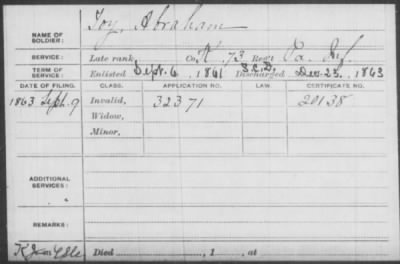 NAME OF SOLDIER: Joy, Abraham
SERVICE: Late rank, Co. K. 73 Reg't Pa. Inf.
TERM OF SERVICE: Enlisted Sept. 6 1861 Discharged Dec. 23, 1863
DATE OF FILING. CLASS. APPLICATION NO. LAW. CERTIFICATE NO.
1863 Sept. 9 Invalid, 32371 20138
Widow,
Minor,
ADDITIONAL SERVICES:
REMARKS:
Died , 1 , at